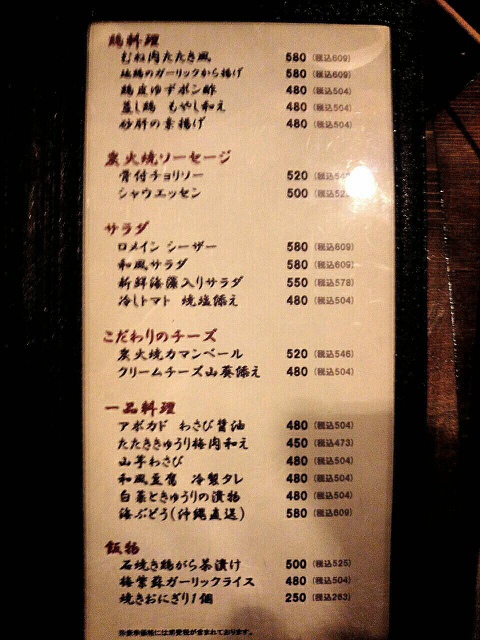 鶏料理
むね肉たたき風 580 (税込609)
地鶏のガーリックから揚げ 580 (税込609)
鶏皮ゆずポン酢 480 (税込504)
蒸し鶏 もやし和え 480 (税込504)
砂肝の素揚げ 480 (税込504)
炭火焼ソーセージ
骨付チョリソー 520
シャウエッセン 500
サラダ
ロメイン シーザー 580 (税込609)
和風サラダ 580 (税込609)
新鮮海藻入りサラダ 550 (税込578)
冷しトマト 焼塩添え 480 (税込504)
こだわりのチーズ
炭火焼カマンベール 520 (税込546)
クリームチーズ山葵添え 480 (税込504)
一品料理
アボカド わさび醤油 480 (税込504)
たたききゅうり梅肉和え 450 (税込473)
山芋わさび 480 (税込504)
和風豆腐 冷製タレ 480 (税込504)
白菜ときゅうりの漬物 480 (税込504)
海ぶどう(沖縄直送) 580 (税込609)
飯物
石焼き鶏がら茶漬け 500 (税込525)
梅紫蘇ガーリックライス 480 (税込504)
焼きおにぎり1個 250 (税込263)
※表示価格には消費税が含まれております。